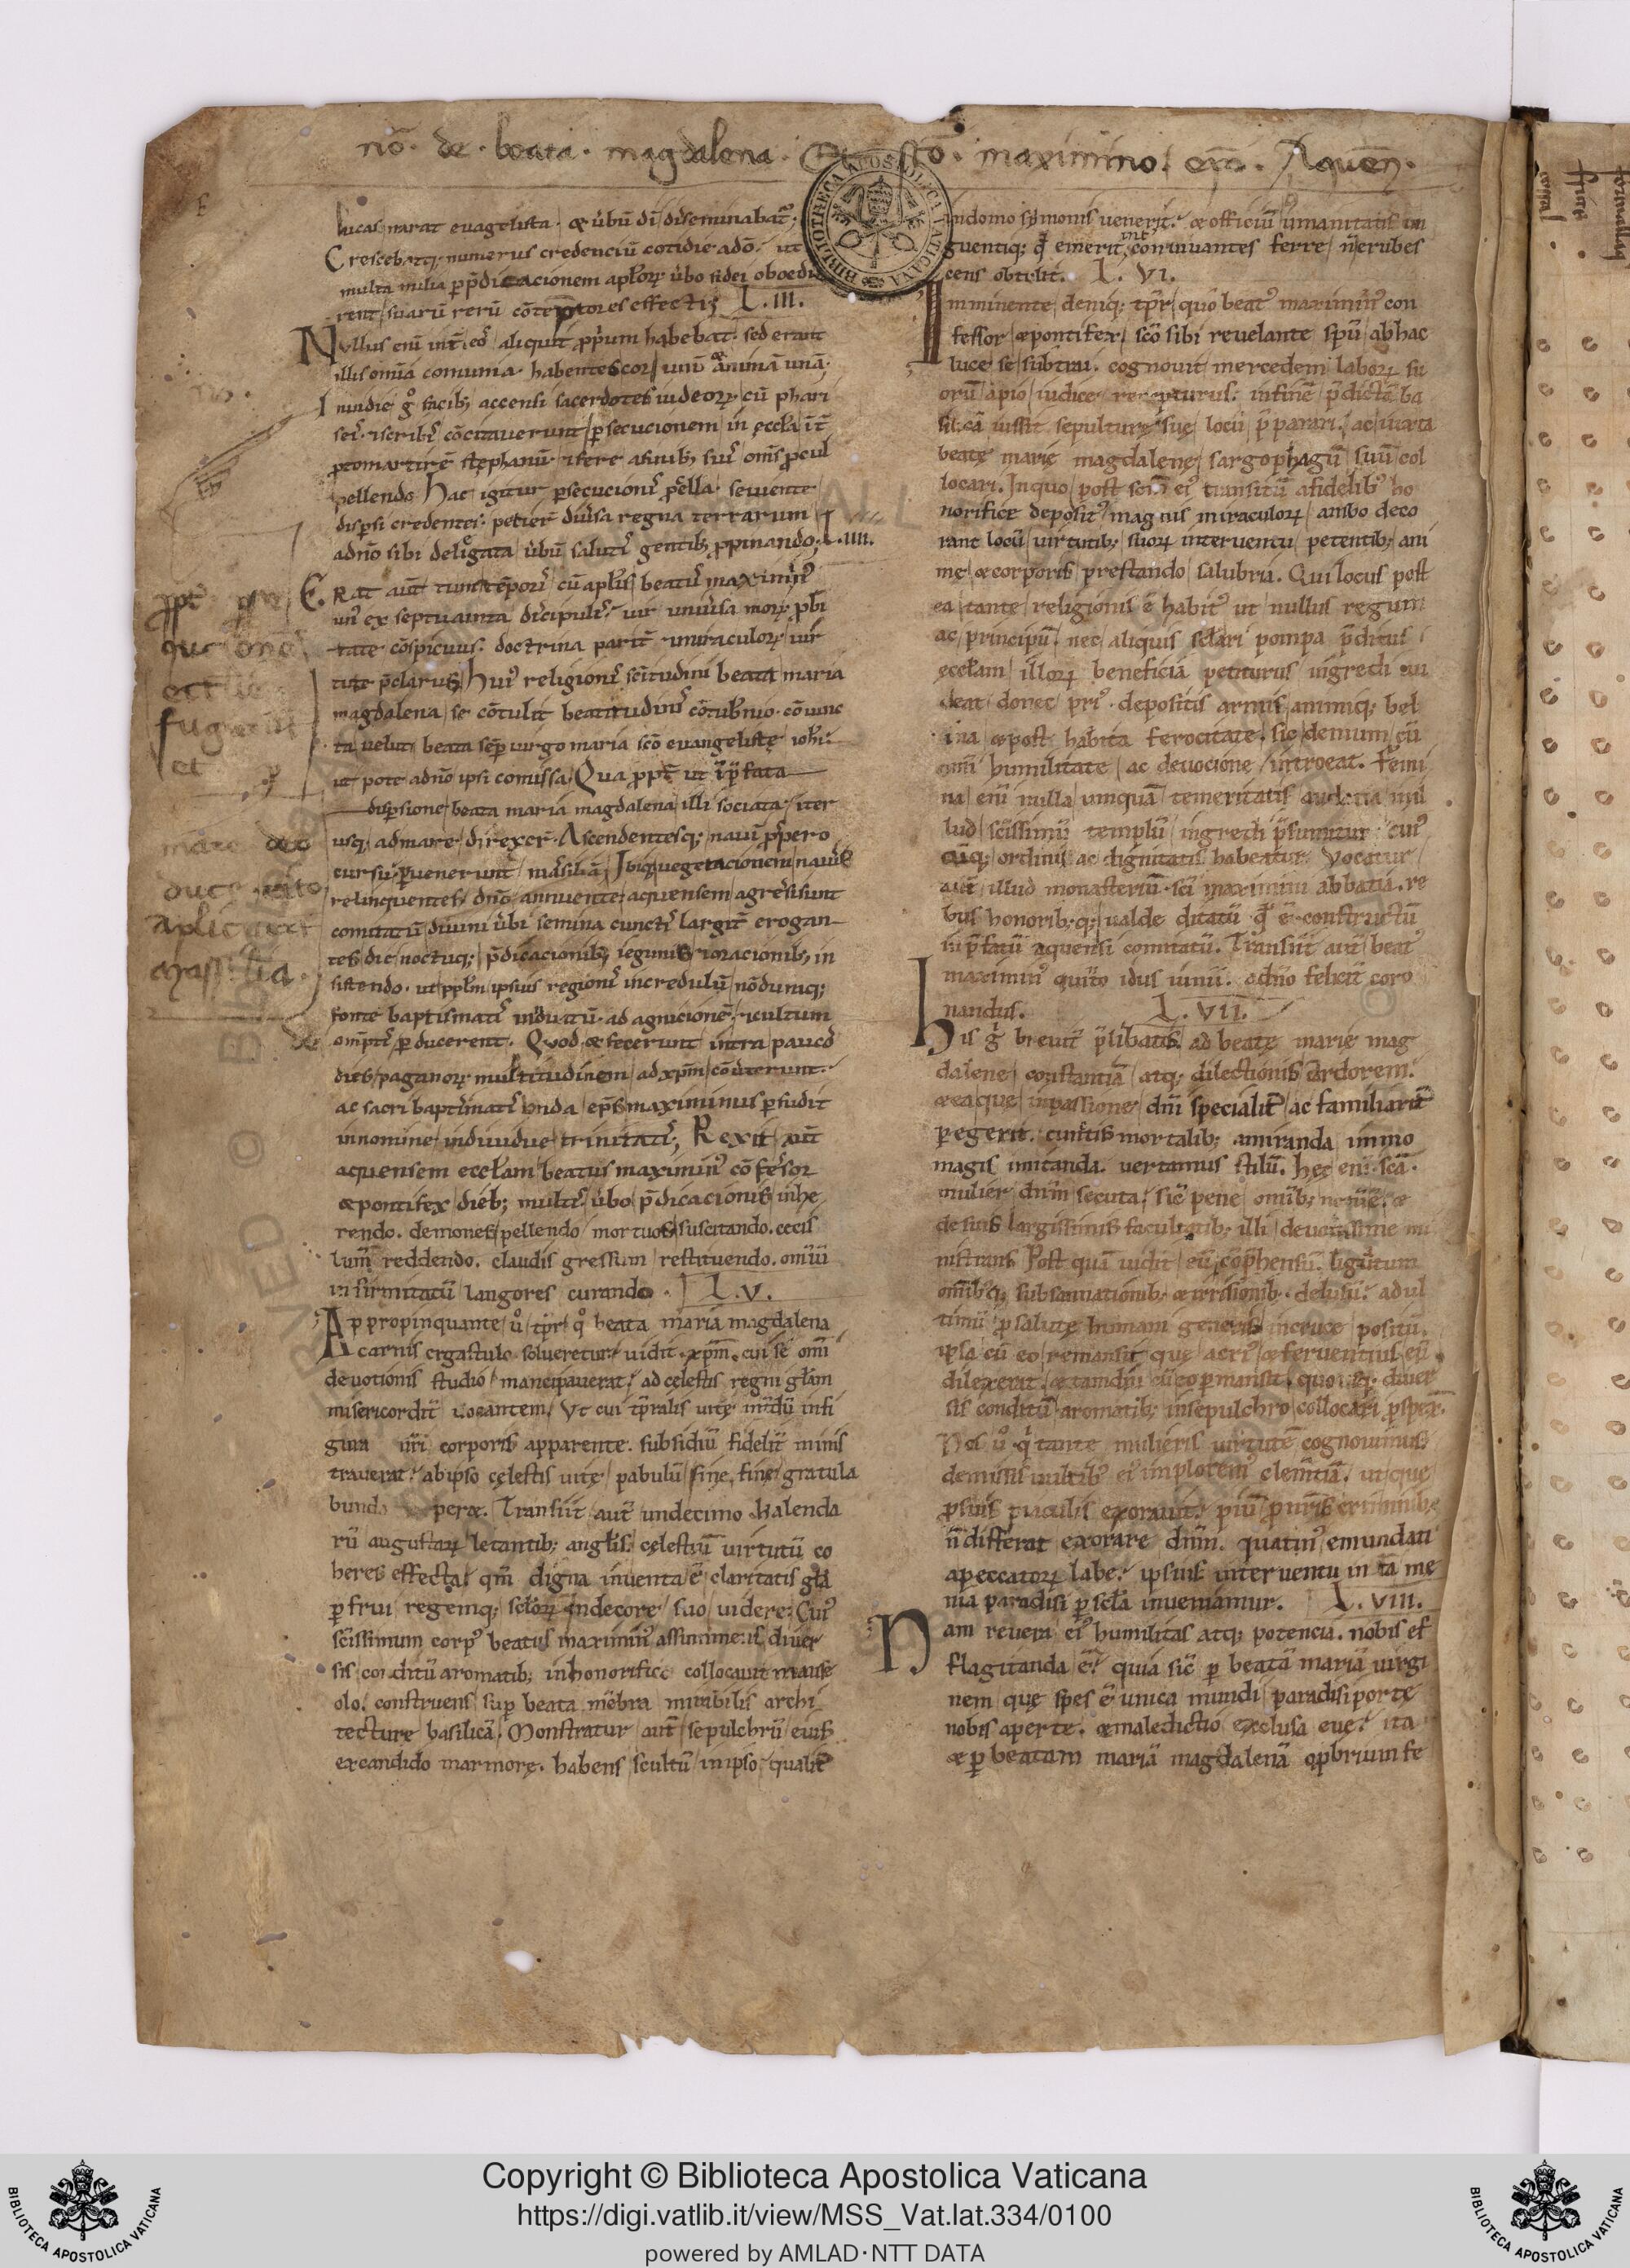 nō. de. beata. magdalena. Et scō. maximino. epō. Aquen̄.
lucas narat evangelista. & u̾bū dī diseminabat᷑.
Crescebatq; numerus credenciū cotidie adō. ut
multa milia p p̄dicacionem apl̄oꝝ u̾bo fidei oboedi
rent suarū rerū cōtemptores effecti; L. III.
Nullus enī int̄ eos aliquit p̄prium habebat. sed erant
illis omīa comunia. habentes cor unū & animā unā.
Iudic̄ g̊ facib; accensi sacerdotes iudeoꝝ cū phari
seis & scribis cōcitaverunt p̱secucionem in eccl̄a īt̄
protomartirē stephanū & fere a finib; suis om̄s procul
pellendo. Hac igitur p̱secucionis p̱cella seviente
disp̱si credentes. petier̄ div̾sa regna terrarum
adn̄o sibi delegata u̾bū salutis gentib; propinando. L. IIII.
Erat aut̄ tunc tēporis cū apl̄is beatus maximin᷒
un᷒ ex septuainta discipulis. vir univ̾sa moꝝ p̱bi
tate cōspicuus. doctrina parit̄ & miraculoꝝ vir
tute p̄clarus. Hui᷒ religionis sc̄itudini beata maria
magdalena se cōtulit beatitudinis cōtub̄nio. cōiunc
ta velut beata semp̱ virgo maria scō evangeliste ioh̄i.
ut pote adn̄o ipsi comissa. Qua propt̄ ut ī p̄fata
disp̱sione beata maria magdalena illi sociata iter
usq; ad mare direxer̄. Ascendentesq; navim prospero
cursu p̱venerunt mars̄iliā. Ibiq; vegetacionem navis
relinquentes dn̄o annuente. aquensem agressi sunt
comitatū divini u̾bi semina cunctis largit̄ erogan
tes. die noctuq; p̄dicacionib; ieguniis & oracionib; in
sistendo. ut ppl̄m ipsius regionis incredulū nōdumq;
fonte baptismatis indutū. ad agnicionē & cultum
omp̄tis p̱ducerent. Quod & fecerunt intra paucos
dies paganoꝝ multitudinem ad xp̄m cōv̾terunt.
ac sacri baptismatis unda ep̄s maximinus p̱fudit
in nomine individue trinitatis. Rexit aut̄
aquensem eccl̄am beatus maximin᷒ cōfessor
& pontifex dieb; multis. u̾bo p̄dicacionis inhe
rendo. demones pellendo mortuos suscitando. cecis
lum̄ reddendo. claudis gressum restituendo. omīū
infirmitatū langores curando. L. V.
Appropinquante ů tp̄r q̊ beata maria magdalena
carnis ergastulo solveretur. vidit xp̄m. cui se omī
devotionis studio mancipaverat. ad celestis regni gl̄am
misericordit̄ vocantem. Ut cui tp̄ralis vite
corporis apparente. subsidiū fidelit̄ minis
traverat. ab ipso celestis vite pabulū sine fine gratula
Transiit aut̄ undecimo Kalenda
rū augustaꝝ letantib; angl̄is. celestiū virtutū co
heres effecta. qm̄ digna inventa ē claritatis gl̄a
p̱frui regemq; scl̄oꝝ in decore suo videre. Cui᷒
sc̄issimum corp᷒ beatus maximin᷒ assumens diver
sis conditū aromatib; in honorifice collocavit mause
olo. construens sup̱ beata mēbra mirabilis archi
tecture basilicā. Monstratur aut̄ sepulchrū eius
ex candido marmore. habens scultū in ipso qualit̄
in domo symonis venerit. & officiū umanitatis un
guentiq; q̄ emerit int̄ convivantes ferre n̄ erubes
cens obtulit. L. VI.
Imminente deniq; tp̄r quo beat᷒ maximin᷒ con
fessor & pontifex scō sibi revelante sp̄u ab hac
luce se subtrai. cognovit mercedem laboꝝ su
orū a pio iudice recepturus. infinē p̄dictā ba
silicā iussit sepulture sue locū p̄parari. ac iuxta
beate marie magdalene sargophagū suū col
locari. In quo post sc̄m ei᷒ transitū a fidelib᷒ ho
norifice deposit᷒ magnis miraculoꝝ ambo deco
rant locū virtutib; suoꝝ interventu petentib; ani
me & corporis prestando salubria. Qui locus post
ea tante religionis ē habit᷒ ut nullus regum
ac principū. nec aliquis scl̄ari pompa p̄ditus
eccl̄am illoꝝ beneficia petiturus ingredi au
deat donec pri᷒. depositis armis animiq; bel
ina & post habita ferocitate. sic demum cū
omī humilitate ac devocione introeat. Femi
na enī nulla umquā temeritatis audatia nul
lud sc̄issimū templū ingredi p̄sumitur. cui᷒
cūq; ordinis ac dignitatis habeatur. Vocatur
aut̄ illud monasteriū. sc̄i maximini abbatia. re
bus honorib;q; valde ditatū q̄ ē constructū
in p̄fatū aquensi comitatū. Transiit aut̄ beat᷒
maximin᷒ quīto idus iunii. adn̄o felicit̄ coro
nandus. L. VII.
His g̊ brevit̄ p̄libatis. ad beate marie mag
dalene constantiā atq; dilectionis ardorem.
& ea que in passione dn̄i specialit̄ ac familiarit̄
p̱egerit. cuntis mortalib; amiranda immo
magis imitanda. vertamus stilū. hec enī. scā.
mulier dn̄m secuta. sic pene omīb;
de suis largissimis facultatib; illi devotissime mi
nistrans. Post quā vidit eū cōp̄hensū. ligatum
omīb;q; subsannationib; & irrisionib; delusū. ad ul
timū p̱ salute humani generis in cruce positū.
ipsa cū eo remansit que acri᷒ & ferventius eū
dilexerat. & tamdiu cū eo p̱mansit. quo usq; diver
sis conditū aromatib; in sepulchro collocari p̱spex̄.
Nos ů q̄ tante mulieris virtutē cognovimus.
demissis vultib᷒ ei᷒ implorem᷒ clem̄tiā. ut que
p̱ suis piaculis exoravit. piū p̱ nr̄is criminib;
n̄ differat exorare dn̄m. quatin᷒ emundati
a peccatoꝝ labe. ipsius interventu in tā me
nia paradisi p̱ scl̄a inveniamur. L. VIII.
Nam revera ei᷒ humilitas atq; potencia. nobis ef
flagitanda ē. quia sic p̱ beatā mariā virgi
nem que spes ē unica mundi paradisi porte
nobis aperte. & maledictio exclusa eve. ita
& p̱ beatam mariā magdalenā opprbrium fe
Copyright © Biblioteca Apostolica Vaticana
https://digi.vatlib.it/view/MSS_Vat.lat.334/0100
powered by AMLAD·NTT DATA
BIBLIOTECA APOSTOLICA VATICANA
BIBLIOTECA APOSTOLICA VATICANA